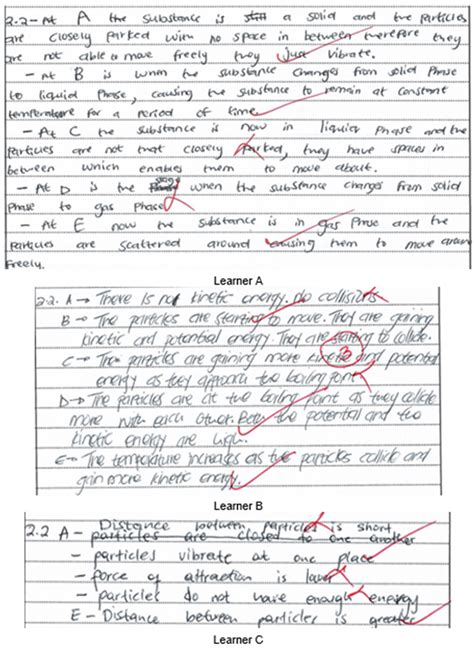 2.2-At A the substance is still a solid and the particles
are closely parked with no space in between therefore they
are not able to move freely they just vibrate.
- At B is when the substance changes from solid phase
to liquid phase, causing the substance to remain at constant
temperature for a period of time
- At C the substance is now in liquid phase and the
particles are not that closely parked, they have spaces in
between which enables them to move about.
- At D is the stage when the substance changes from solid
phase to gas phase
- At E now the substance is in gas phase and the
particles are scattered around causing them to move around
freely.
Learner A
2.2. A → There is no kinetic energy. No collisions
B → The particles are starting to move. They are gaining
kinetic and potential energy. They are starting to collide.
C → The particles are gaining more kinetic and potential
3
energy as they approach the boiling point
D → The particles are at the boiling point as they collide
more with each other. Both the potential and the
kinetic energy are high.
E → The temperature increases as the particles collide and
gain more kinetic energy.
Learner B
2.2 A - Distance between particles is short
particles are closed to one another
- particles vibrate at one place
- force of attraction is lower
- particles do not have enough energy
E - Distance between particles is greater
Learner C